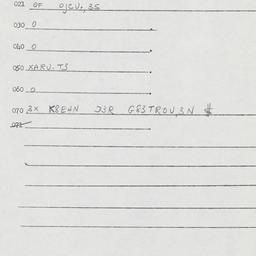 021 OF OJCU., 3S
030 0
040 0
050 XARU. T3
060 0
070 3X K8EHN J3R G83TROU,3N $
072